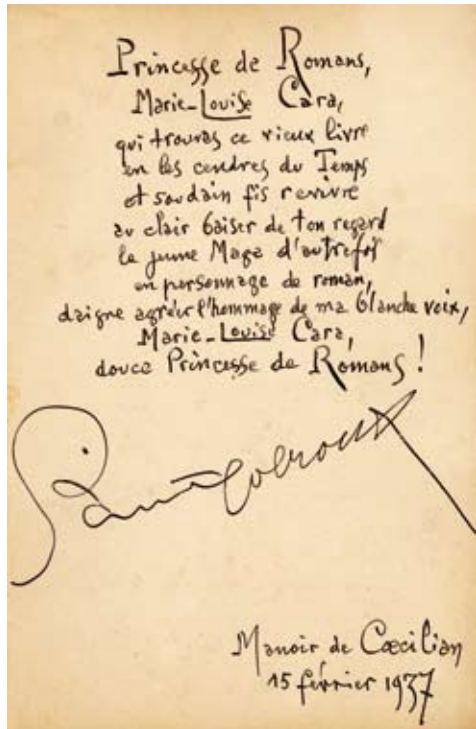 Princesse de Romans,
Marie-Louise Cara,
qui trouvas ce vieux livre
en les cendres du Temps
et soudain fis revivre
au clair baiser de ton regard
le jeune Mage d'autrefois
en personnage de roman,
daigne agréer l'hommage de ma blanche voix,
Marie-Louise Cara,
douce Princesse de Romans !
Saint-Pol-Roux
Manoir de Cœcilian
15 février 1937